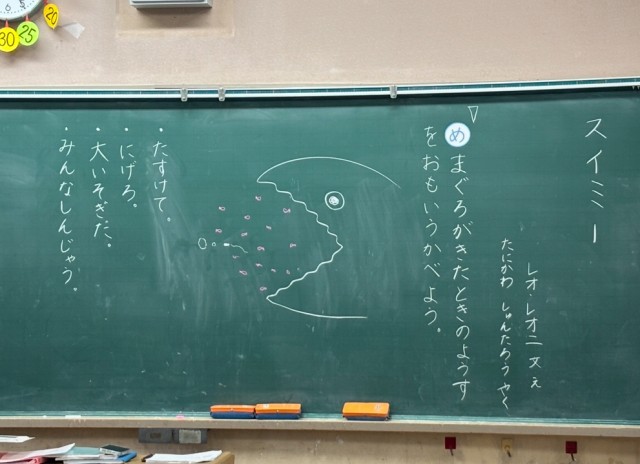 スイミー
レオ・レオニ 文 え
たにかわ しゅんたろう やく
め まぐろがきたときのようす
をおもいうかべよう。
・たすけて。
・にげろ。
・大いそぎだ。
・みんなしんじゃう。
30
25
20